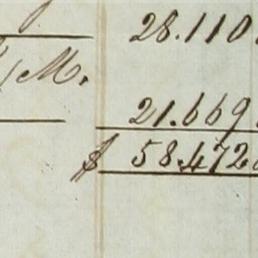 28.110
M.
21.669
$ 58.472